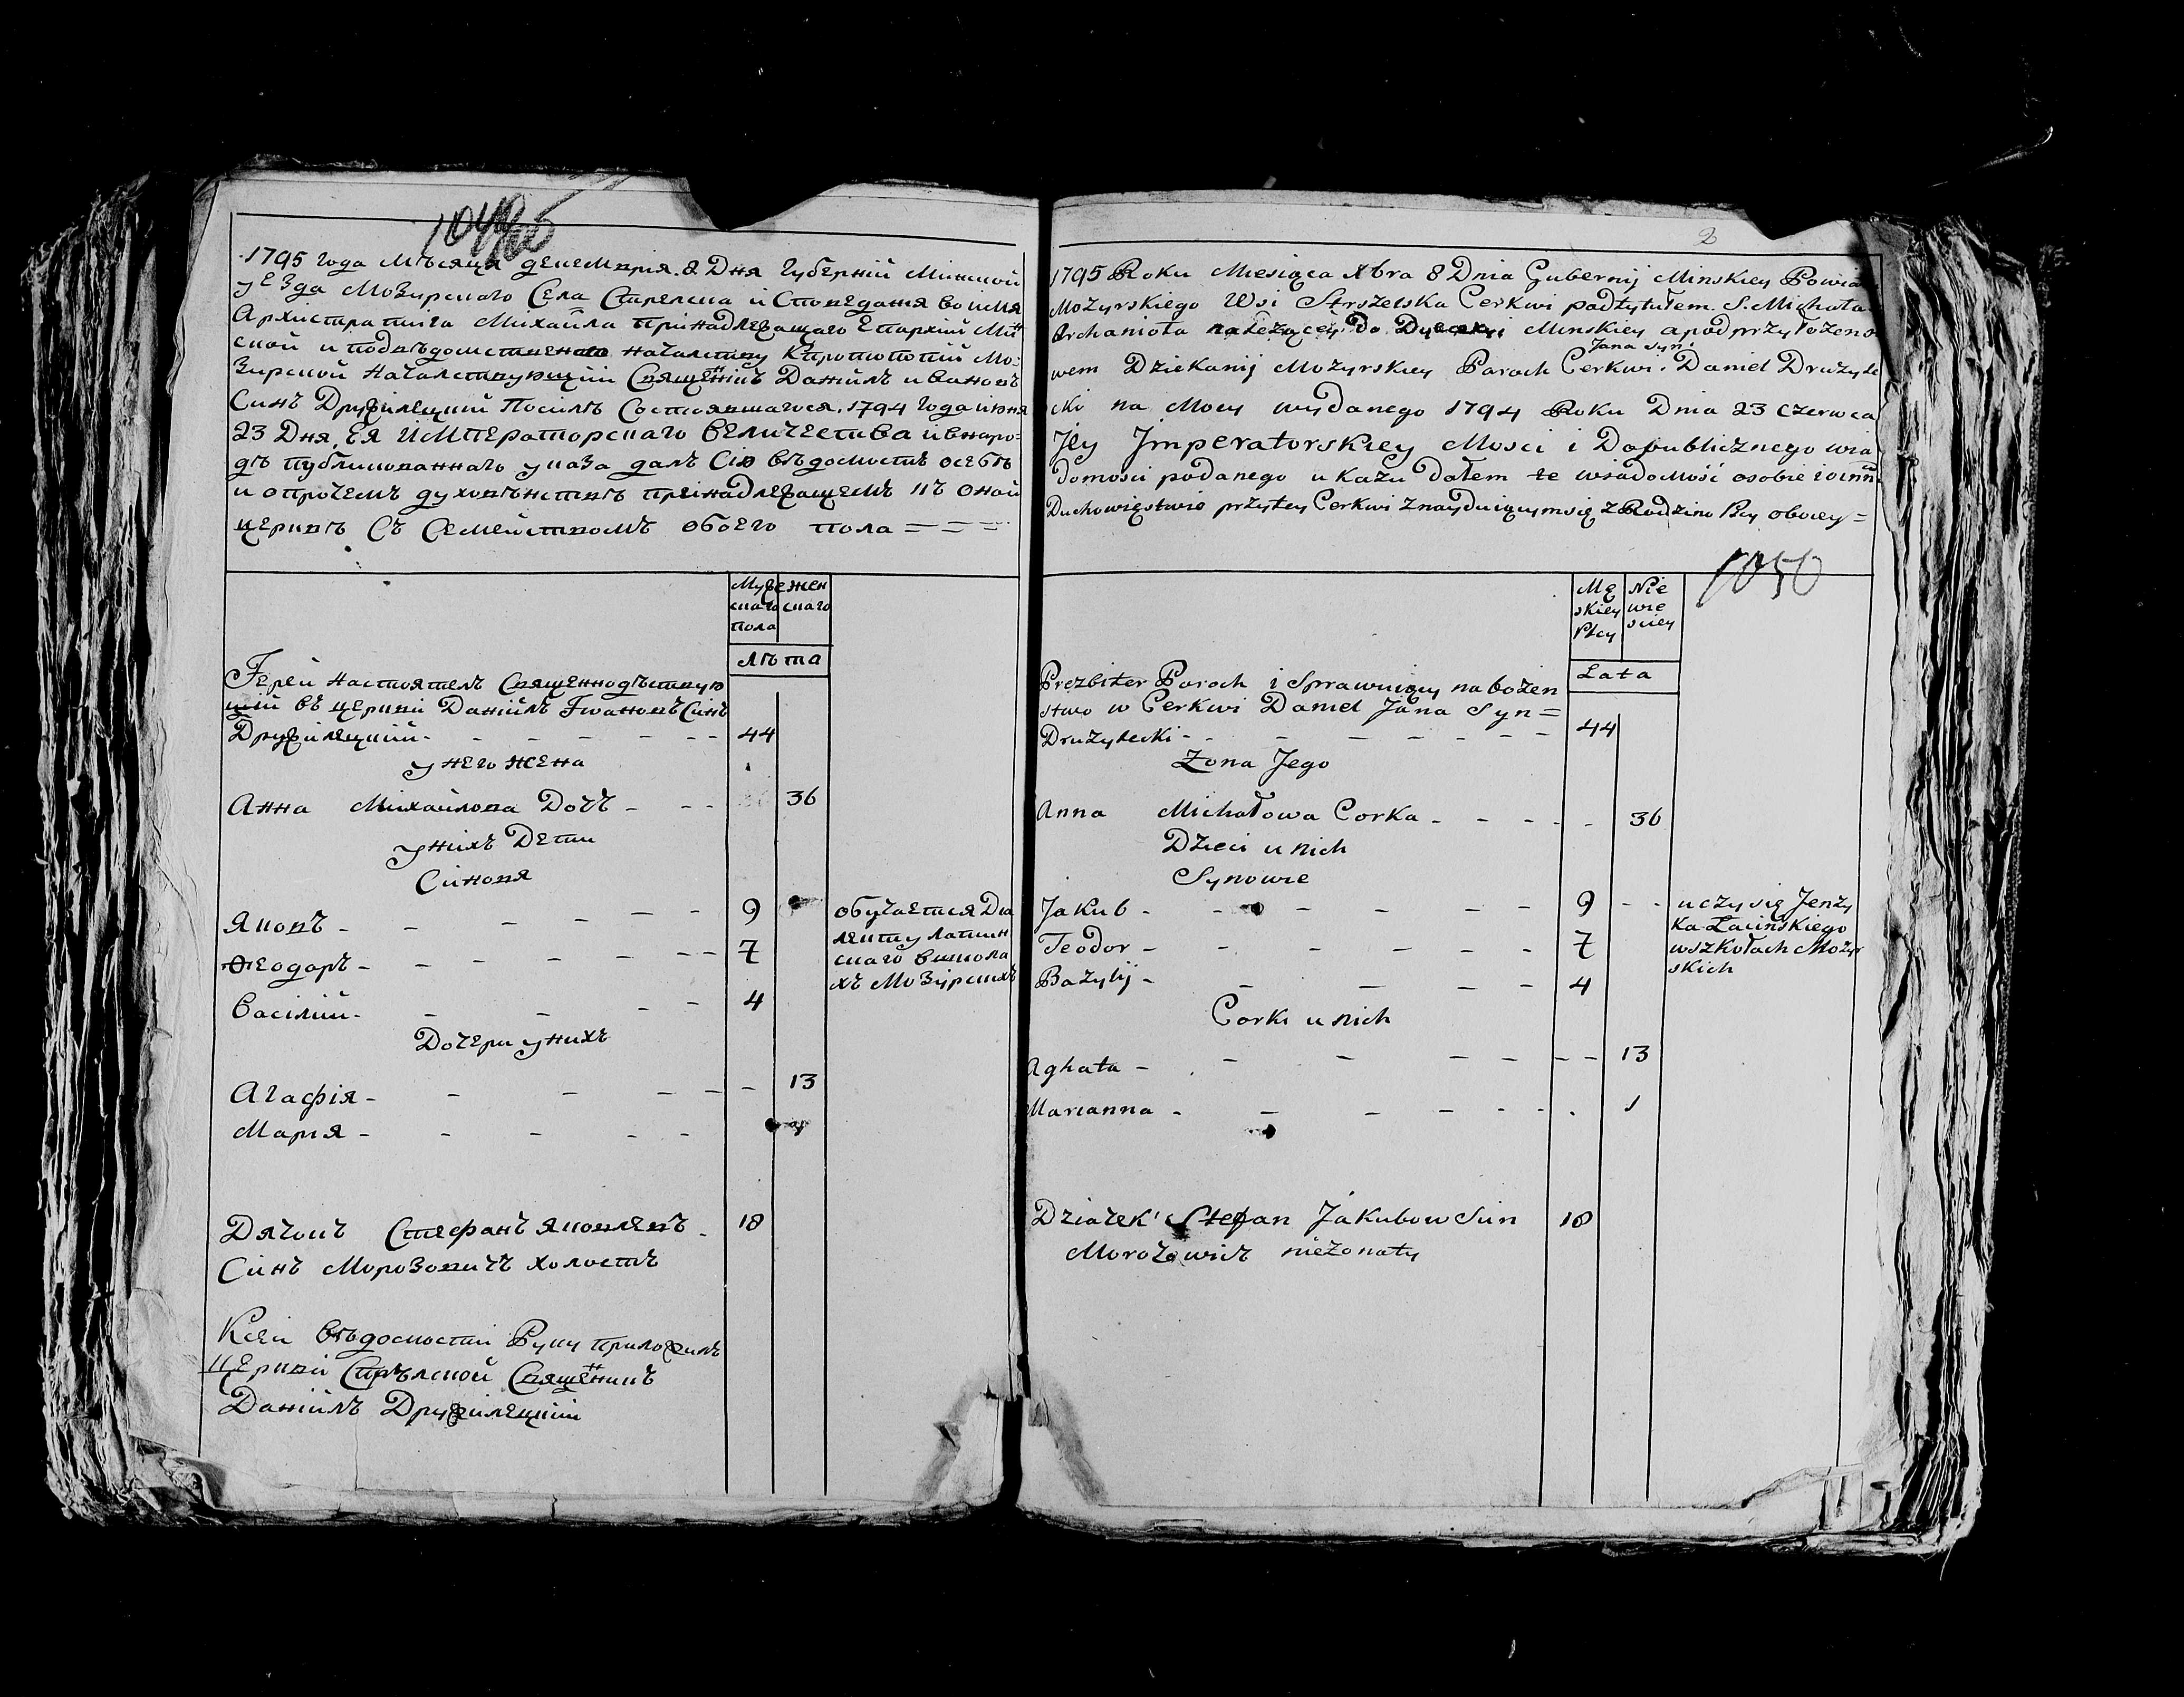 1795 года мѣсяца декемврія. 8 Дня Губерніи Минской
уЕзда Мозирскаго Села Стрелска и Споведания во имя
Архистратига Михаила принадлежащаго Епархіи Мин
ской и подвѣдомственаго началству Кпротопопіи Мо=
зирской началствующій Священикъ Даніилъ ивановъ
Синъ Дружилецкий Посилѣ Состоявшагося. 1794 года июня
23 Дня, Ея Императорскаго Величества ивнаро=
дѣ публикованнаго указа далъ Сію вѣдомость осебѣ
и опрочемъ духовѣнствѣ принадлежащемъ къ оной
церквѣ Съ Семействомъ обоего пола = = =
Муже
скаго
пола
жен
скаго
лѣта
Іерей настоятель Священнодѣствую
щій въ церкви Даніилъ Івановъ Синъ
Дружилецкий - - - - - - - 44
У него жена
Анна Михайлова Дочъ - - - 36
Унихъ Дети
Синовя
Яковъ - - - - - - 9
обучается Диа
лекту латин
скаго вшкола
хъ Мозирскихъ
Ѳеодоръ - - - - - - - 7
Василий - - - - - 4
Дочери унихъ
Агафія - - - - - - 13
Мария - - - - -
Дячокъ Стефанъ Яковлевъ - 18
Синъ Морозовичъ холостъ
Ксей вѣдомости Руку приложилъ
Церкви Стрѣлской Священикъ
Даніилъ Дружилецкій
2
1795 Roku Miesiąca Xbra 8 Dnia Gubernij Minskiey Powia
Mozyrskiego Wsi Strszelska Cerkwi podtytułem. S. Michała
Archanioła należącey do Dyecezyi Minskiey apodprzyłożens
Jana syn
wem Dziekanij Mozyrskiey Paroch Cerkwi. Daniel Drużyłe
cki na Mocy wydanego 1794 Roku Dnia 23 Czerwca
Jey Jmperatorskiey Mosci i Dopublicznego wia
domosci podanego ukazu dałem te wiadomość osobie i oinn
Duchowięstwie przytey Cerkwi znayduiącymsię z Rodzino Płcy oboiey =
1050
Mę
skiey
Płcy
Nie
wie
sciey
Lata
Prezbiter Paroch i Sprawuiący nabożen
stwo w Cerkwi Daniel Jana Syn =
Drużyłecki - - - - - - - 44
Żona Jego
Anna Michałowa Corka - - - - - 36
Dzieci u nich
Synowie
Jakub - - - - - - 9 - -
uczy się Jenzy
ka Łacińskiego
wszkołach Mozyr
skich
Teodor - - - - - - 7
Bazylij - - - - - 4
Corki u nich
Aghata - - - - - - - 13
Marianna - - - - - - . 1
Dziaczek Stefan Jakubow Sun 18
Morozowicz nieżonaty